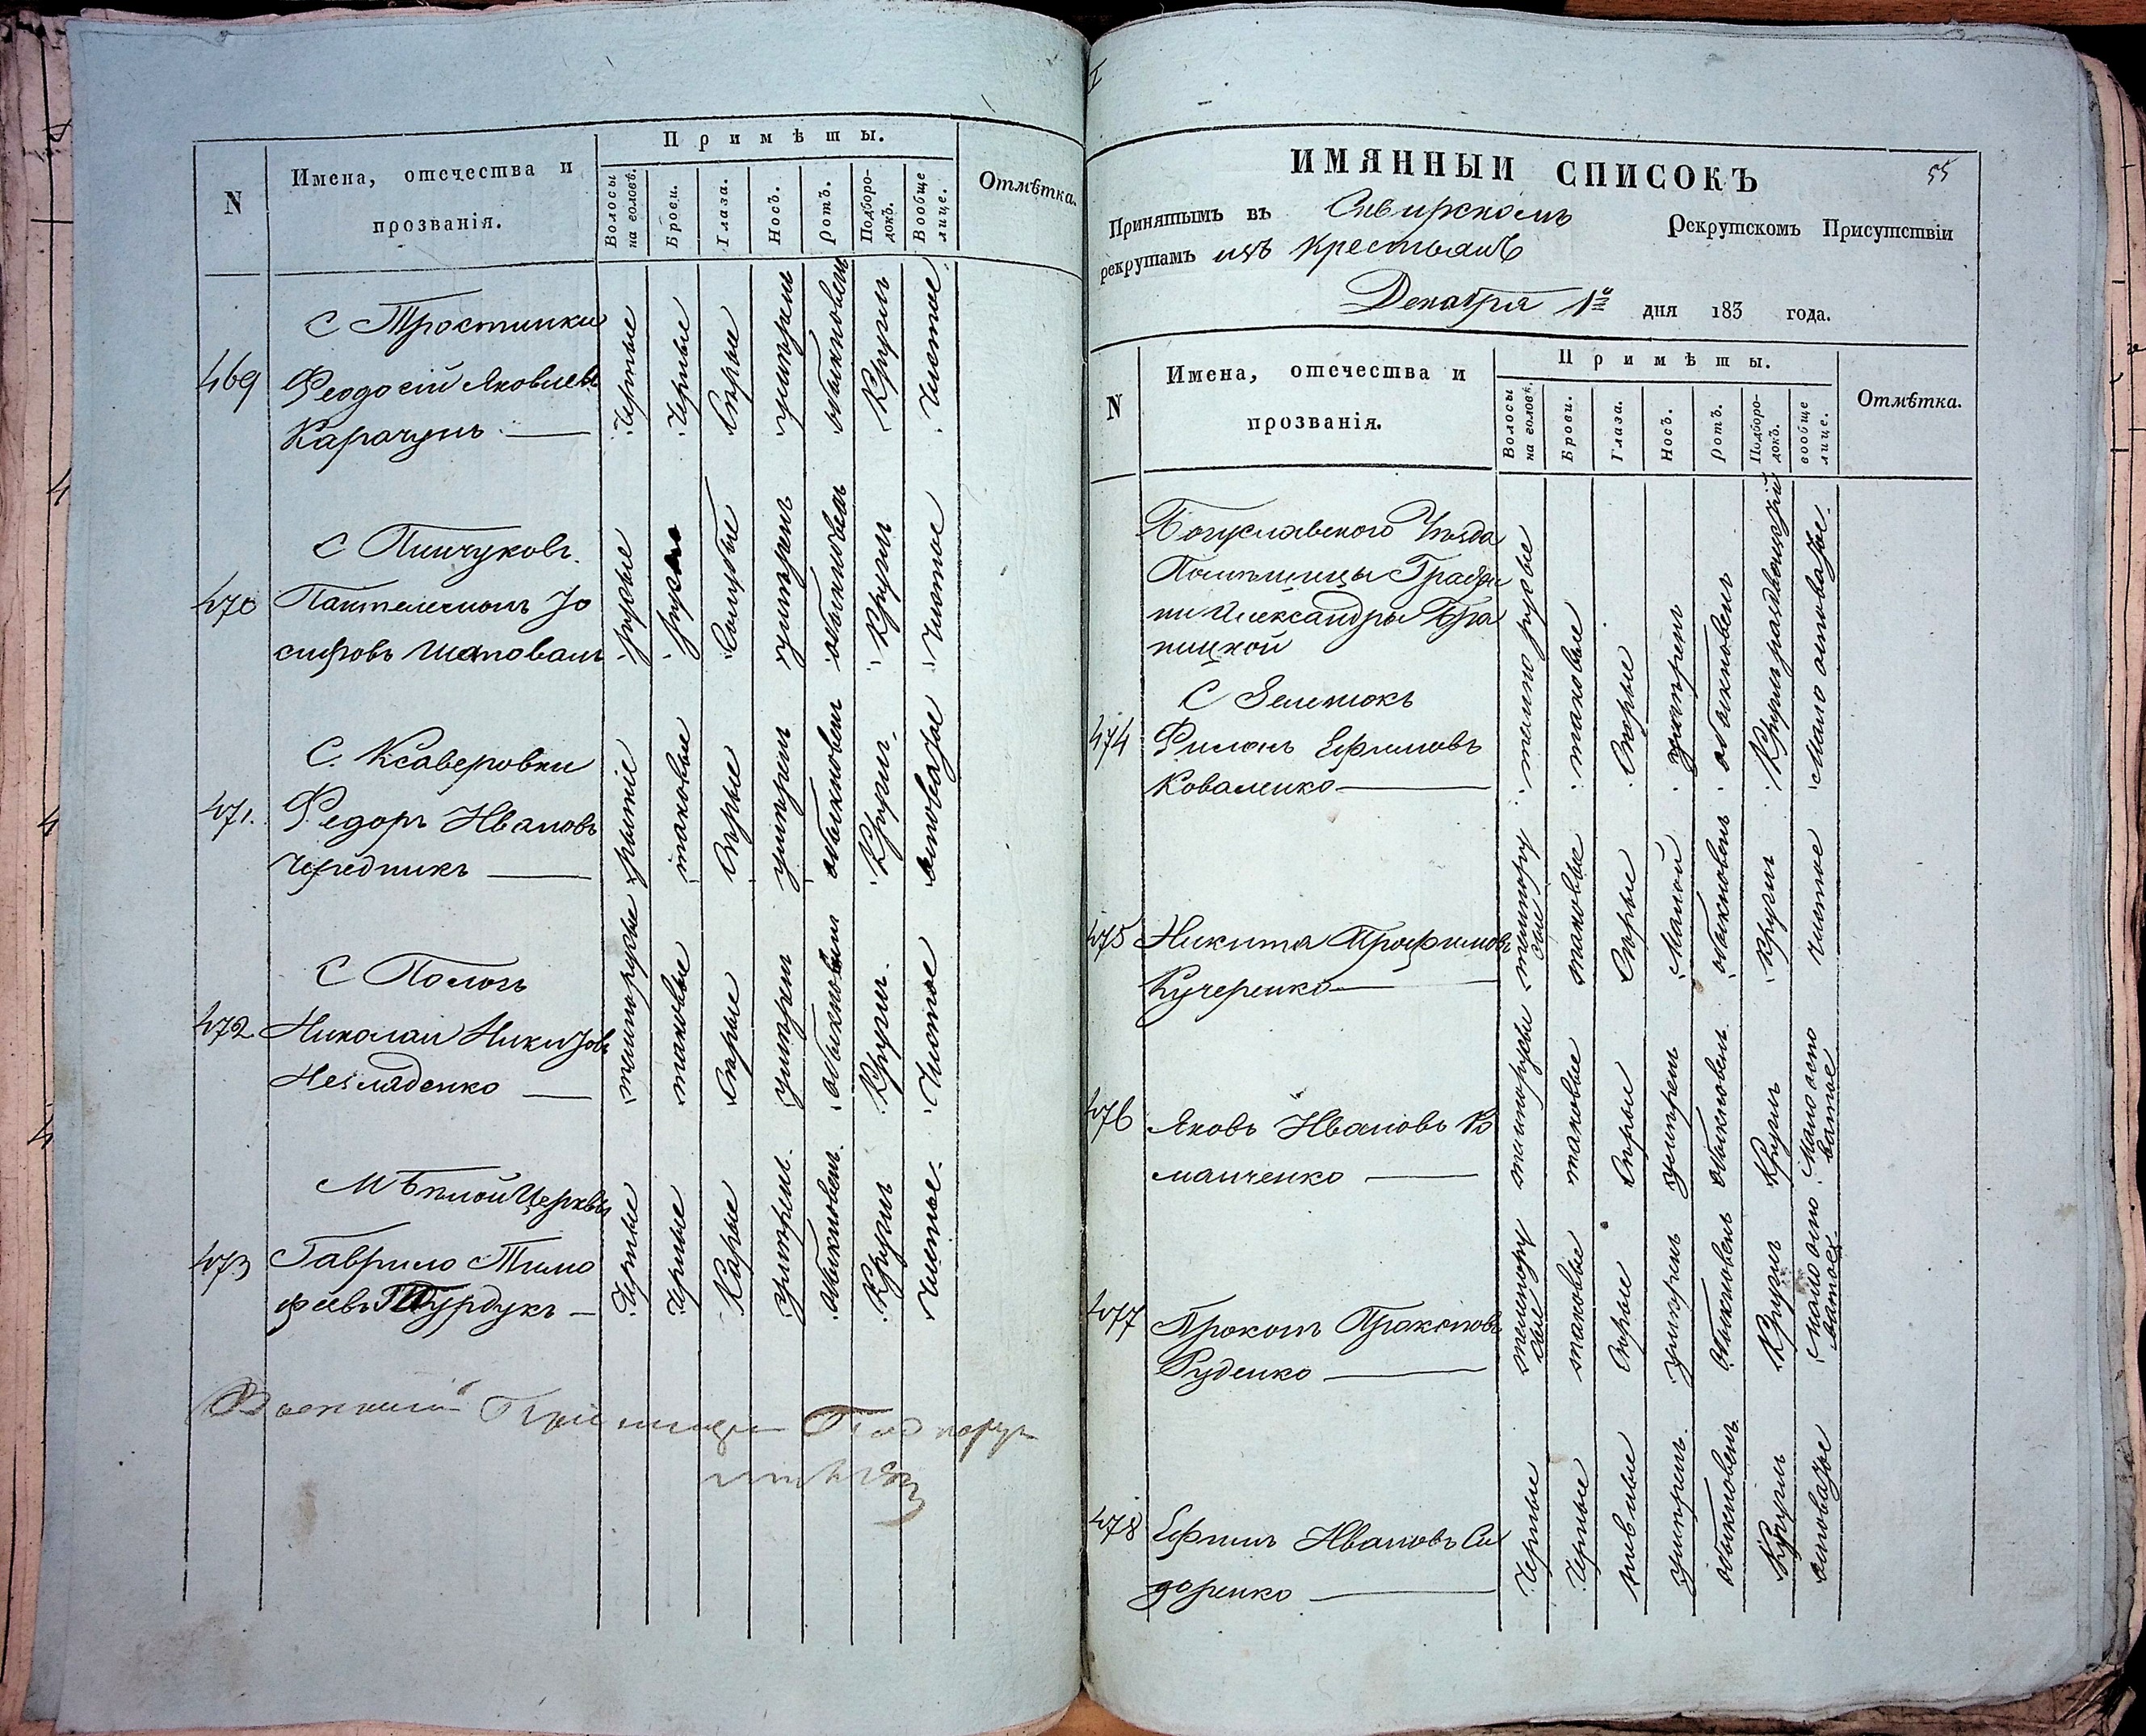 N
Имена, отечества и
прозванія.
Примѣты.
Волосы
на головѣ.
Брови.
Глаза.
Носъ.
Ротъ.
Подборо-
докъ.
Вообще
лице.
Отмѣтка.
С Тростинки
469 Феодосій Яковлевъ
Карачунъ
Черные Черные Сѣрые умѣрен обыкновен Кругл Чистое
С Пинчуковъ
470 Пантелеимонъ Іо
сифовъ Шаповалъ
русые Голубые умѣрен обыкновен Кругл Чистое
С. Ксаверовки
471. Федоръ Ивановъ
Чередникъ
рыжіе таковые Сѣрые умѣрен обыкновен Кругл. оспова
тое
С Пологъ
472 Николай Никитовъ
темнорусые таковые Сѣрые умѣрен обыкновен Кругл. Чистое
М Бѣлой Церквы
473 Гаврило Тимо
феевъ
Черные Черные Карые умѣрен. обыкновен. Кругл Чистое.
Военный Пріемщикъ Подпору
55
ИМЯННЫЙ СПИСОКЪ
Принятымъ въ Сквирскомъ Рекрутскомъ Присутствіи
рекрутамъ изъ крестьянъ
Декабря 1го дня 183 года.
N
Имена, отечества и
прозванія.
Примѣты.
Волосы
на головѣ.
Брови.
Глаза.
Носъ.
Ротъ.
Подборо-
докъ.
вообще
лице.
Отмѣтка.
Богуславского Уѣзда
Помѣщицы Графи
ни Александры Бра
ницкой
С Зеленокъ
474 Филонъ Ефимовъ
Коваленко
темно русые таковые Сѣрые умѣрен обыкновен Кругл раздвоицстый Мало осповатое.
475 Никита Трофимовъ
Кученренко
темнору
сые таковые Сѣрые Малой обыкновен кругл чистое
476 Яковъ Ивановъ Ко
манченко
темнорусы таковые Сѣрые умѣрен обыкновен Кругл Мало оспо
ватое
477 Прокопъ Прокоповъ
Руденко
темнору
сые таковые Сѣрые умѣрен обыкновен Кругл Мало оспо
ватое
478 Ефимъ Ивановъ Си
доренко
Черные Черные пивные умѣрен. обыкновен Кругл осповатое